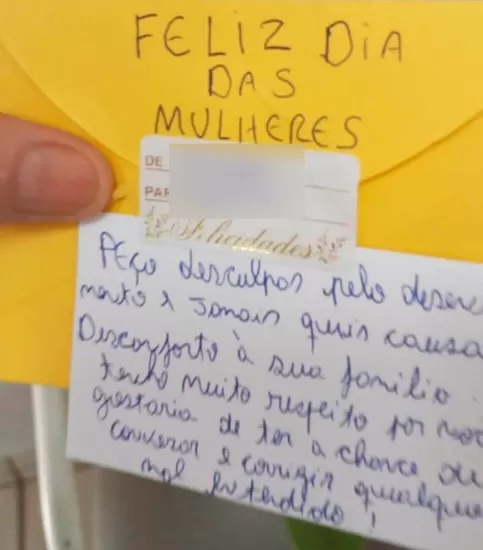 FELIZ DIA
DAS
MULHERES
DE
PAR
Felicidades
Peço desculpas pelo desen
mento e Jamais quis causa
Desconforto à sua familia.
tenho muito respeito por voc
gostaria de ter a chance de
conversar e corrigir qualque
mal Entendido!